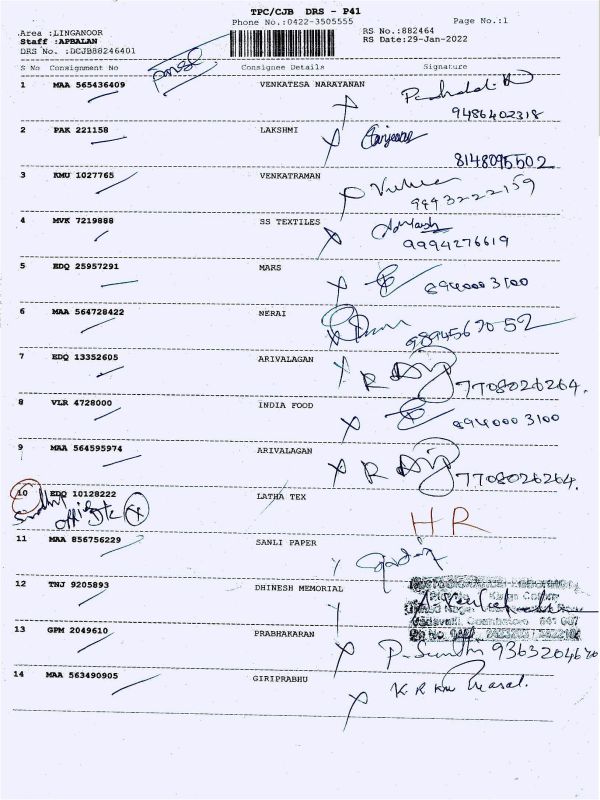 TPC/CJB DRS - P41
Phone No.:0422-3505555 Page No.:1
Area :LINGANOOR RS No.:882464
Staff :APBALAN RS Date:29-Jan-2022
DRS No. :DCJB88246401
S No Consignment No Consignee Details Signature
1 MAA 565436409 VENKATESA NARAYANAN
9486402318
2 PAK 221158 LAKSHMI
8148095502
3 KMU 1027765 VENKATRAMAN
9443222159
4 MVK 7219888 SS TEXTILES
9994276619
5 EDQ 25957291 MARS
8940003100
6 MAA 564728422 NERAI
9894567052
7 EDQ 13352605 ARIVALAGAN
7708026264.
8 VLR 4728000 INDIA FOOD
8940003100
9 MAA 564595974 ARIVALAGAN
7708026264.
10 EDQ 10128222 LATHA TEX
HR
11 MAA 856756229 SANLI PAPER
12 TNJ 9205893 DHINESH MEMORIAL
13 GPM 2049610 PRABHAKARAN
14 MAA 563490905 GIRIPRABHU